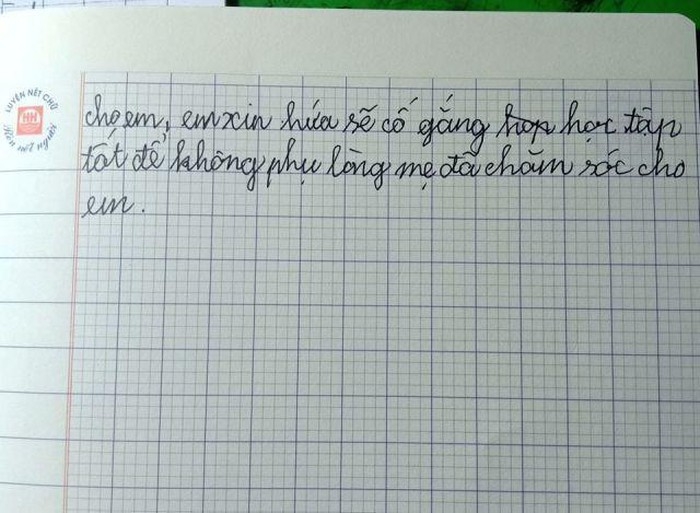 LUYỆN NÉT CHỮ
HH
RÈN NẾT NGƯỜI
cho em, em xin hứa sẽ cố gắng họp học tập
tốt để không phụ lòng mẹ đã chăm sóc cho
em.